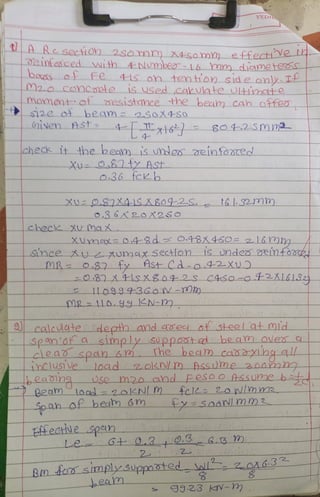 1) A R.c section 250mm x450mm effective is
reinforced with 4-Number-16 mm diameters
bars of Fe 415 on tention side only. If
M20 concrete is used calculate ultimate
moment of resistance the beam can offer.
→ size of beam = 250x450
Given Ast = 4 [π/4 x16²] = 804.25mm2
check it the beam is under reinforced
xu = 0.87 fy Ast
0.36 fck b
xu = 0.87x415x804.25 = 161.32mm
0.36x20x250
check xu max.
xumax = 0.48d = 0.48x450 = 216mm
since xu < xumax section is under reinforced
MR = 0.87 fy Ast (d-0.42xu)
= 0.87 x415x804.25 (450-0.42x161.32)
= 110994360 N-mm
MR = 110.99 KN-m
2) calculate depth and area of steel at mid
span of a simply supported beam over a
clear span 6m. The beam carrying all
inclusive load 20kN/m Assume 300mm
bearing use m20 and Fe500 Assume b=
→ Beam load = 20KN/m fck = 20 N/mm2
span of beam 6m fy = 500N/mm2
Effective span
Le = 6+ 0.3/2 + 0.3/2 = 6.3 m
BM for simply supported = wl²/8 = 20x6.3²/8
beam
= 99.23 KN-m